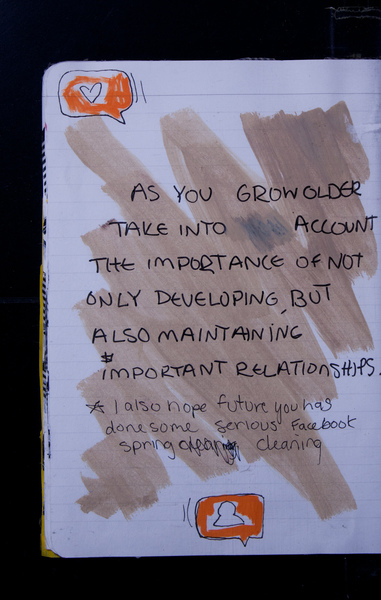 AS YOU GROW OLDER
TAKE INTO ACCOUNT
THE IMPORTANCE OF NOT
ONLY DEVELOPING, BUT
ALSO MAINTAINING
IMPORTANT RELATIONSHIPS.
* I also hope future you has
done some serious Facebook
spring cleaning